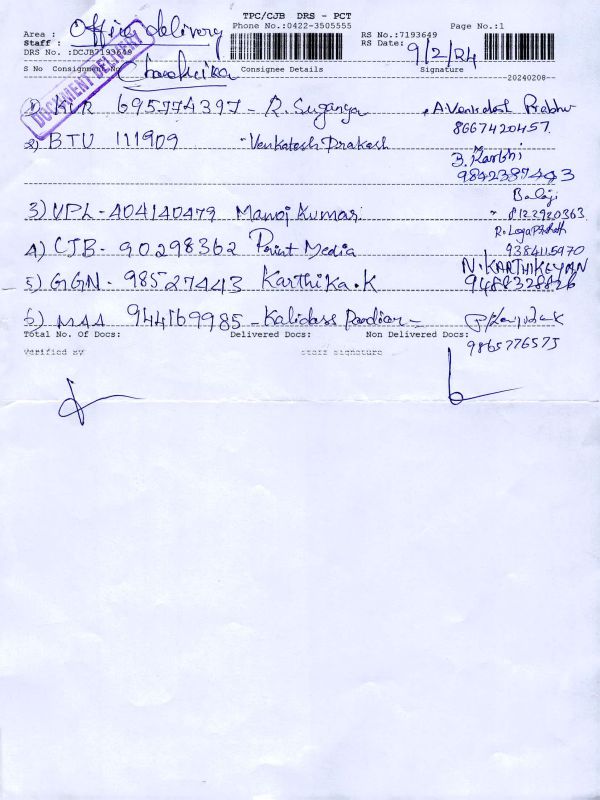 TPC/CJB DRS - PCT
Area : Office delivery Phone No.:0422-3505555 RS No.:7193649 Page No.:1
Staff : RS Date: 9/2/24
DRS No. :DCJB7193649
DOCUMENT DELIVERY
S No Consignment No Consignee Details Signature
20240208
1) KUR 695774397 - R. Suganya A. Venkatesh Prabhu
8667420457
2) BTU 111909 - Venkatesh Prakash
9842387443
3) UPL - 404140479 Manoj Kumar Balaji
8122920363
4) CJB - 90298362 Print Media
9384115970
5) GGN - 98527443 Karthika.K N. KARTHIKEYAN
9488328826
6) MAA 944169985 - Kalidass Pandian -
Total No. Of Docs: Delivered Docs: Non Delivered Docs:
9865776575
Verified By